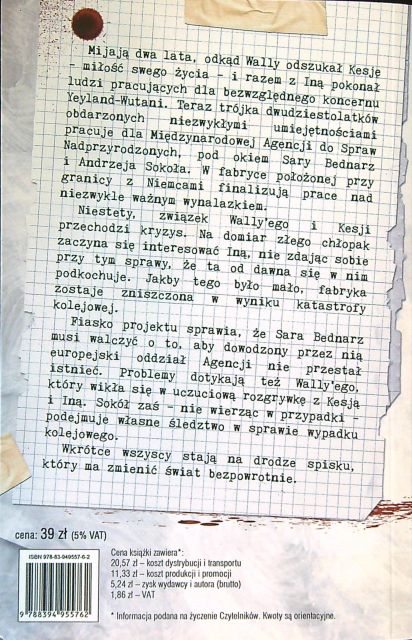 Mijają dwa lata, odkąd Wally odszukał Kesję
- miłość swego życia - i razem z Iną pokonał
ludzi pracujących dla bezwzględnego koncernu
Yeyland-Wutani. Teraz trójka dwudziestolatków
obdarzonych niezwykłymi umiejętnościami
pracuje dla Międzynarodowej Agencji do Spraw
Nadprzyrodzonych, pod okiem Sary Bednarz
i Andrzeja Sokoła. W fabryce położonej przy
granicy z Niemcami finalizują prace nad
niezwykle ważnym wynalazkiem.
Niestety, związek Wally'ego i Kesji
przechodzi kryzys. Na domiar złego chłopak
zaczyna się interesować Iną, nie zdając sobie
przy tym sprawy, że ta od dawna się w nim
podkochuje. Jakby tego było mało, fabryka
zostaje zniszczona w wyniku katastrofy
kolejowej.
Fiasko projektu sprawia, że Sara Bednarz
musi walczyć o to, aby dowodzony przez nią
europejski oddział Agencji nie przestał
istnieć. Problemy dotykają też Wally'ego,
który wikła się w uczuciową rozgrywkę z Kesją
i Iną. Sokół zaś - nie wierząc w przypadki -
podejmuje własne śledztwo w sprawie wypadku
kolejowego.
Wkrótce wszyscy stają na drodze spisku,
który ma zmienić świat bezpowrotnie.
cena: 39 zł (5% VAT)
ISBN 978-83-949557-6-2
9 788394 955762
Cena książki zawiera*:
20,57 zł – koszt dystrybucji i transportu
11,33 zł – koszt produkcji i promocji
5,24 zł – zysk wydawcy i autora (brutto)
1,86 zł – VAT
* Informacja podana na życzenie Czytelników. Kwoty są orientacyjne.